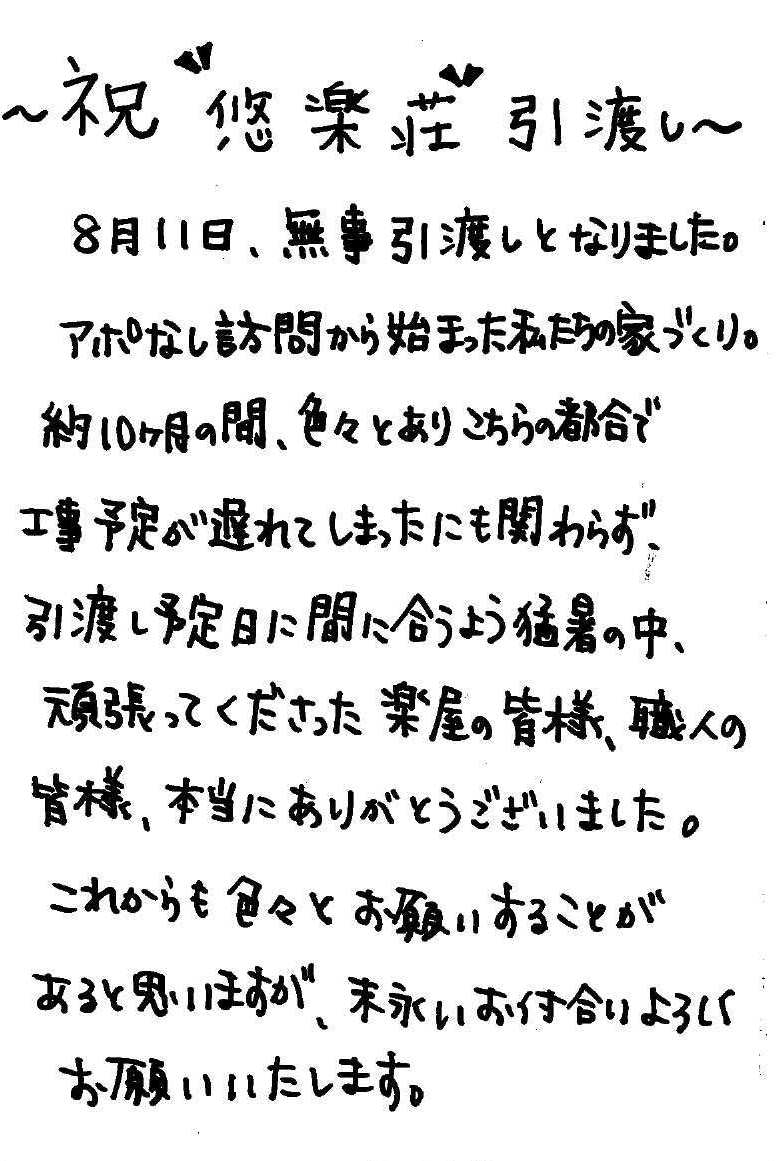 ～祝"悠楽荘"引渡し～
8月11日、無事引渡しとなりました。
アポなし訪問から始まった私たちの家づくり。
約10ヶ月の間、色々とありこちらの都合で
工事予定が遅れてしまったにも関わらず、
引渡し予定日に間に合うよう猛暑の中、
頑張ってくださった楽屋の皆様、職人の
皆様、本当にありがとうございました。
これからも色々とお願いすることが
あると思いますが、末永いお付合いよろしく
お願いいたします。